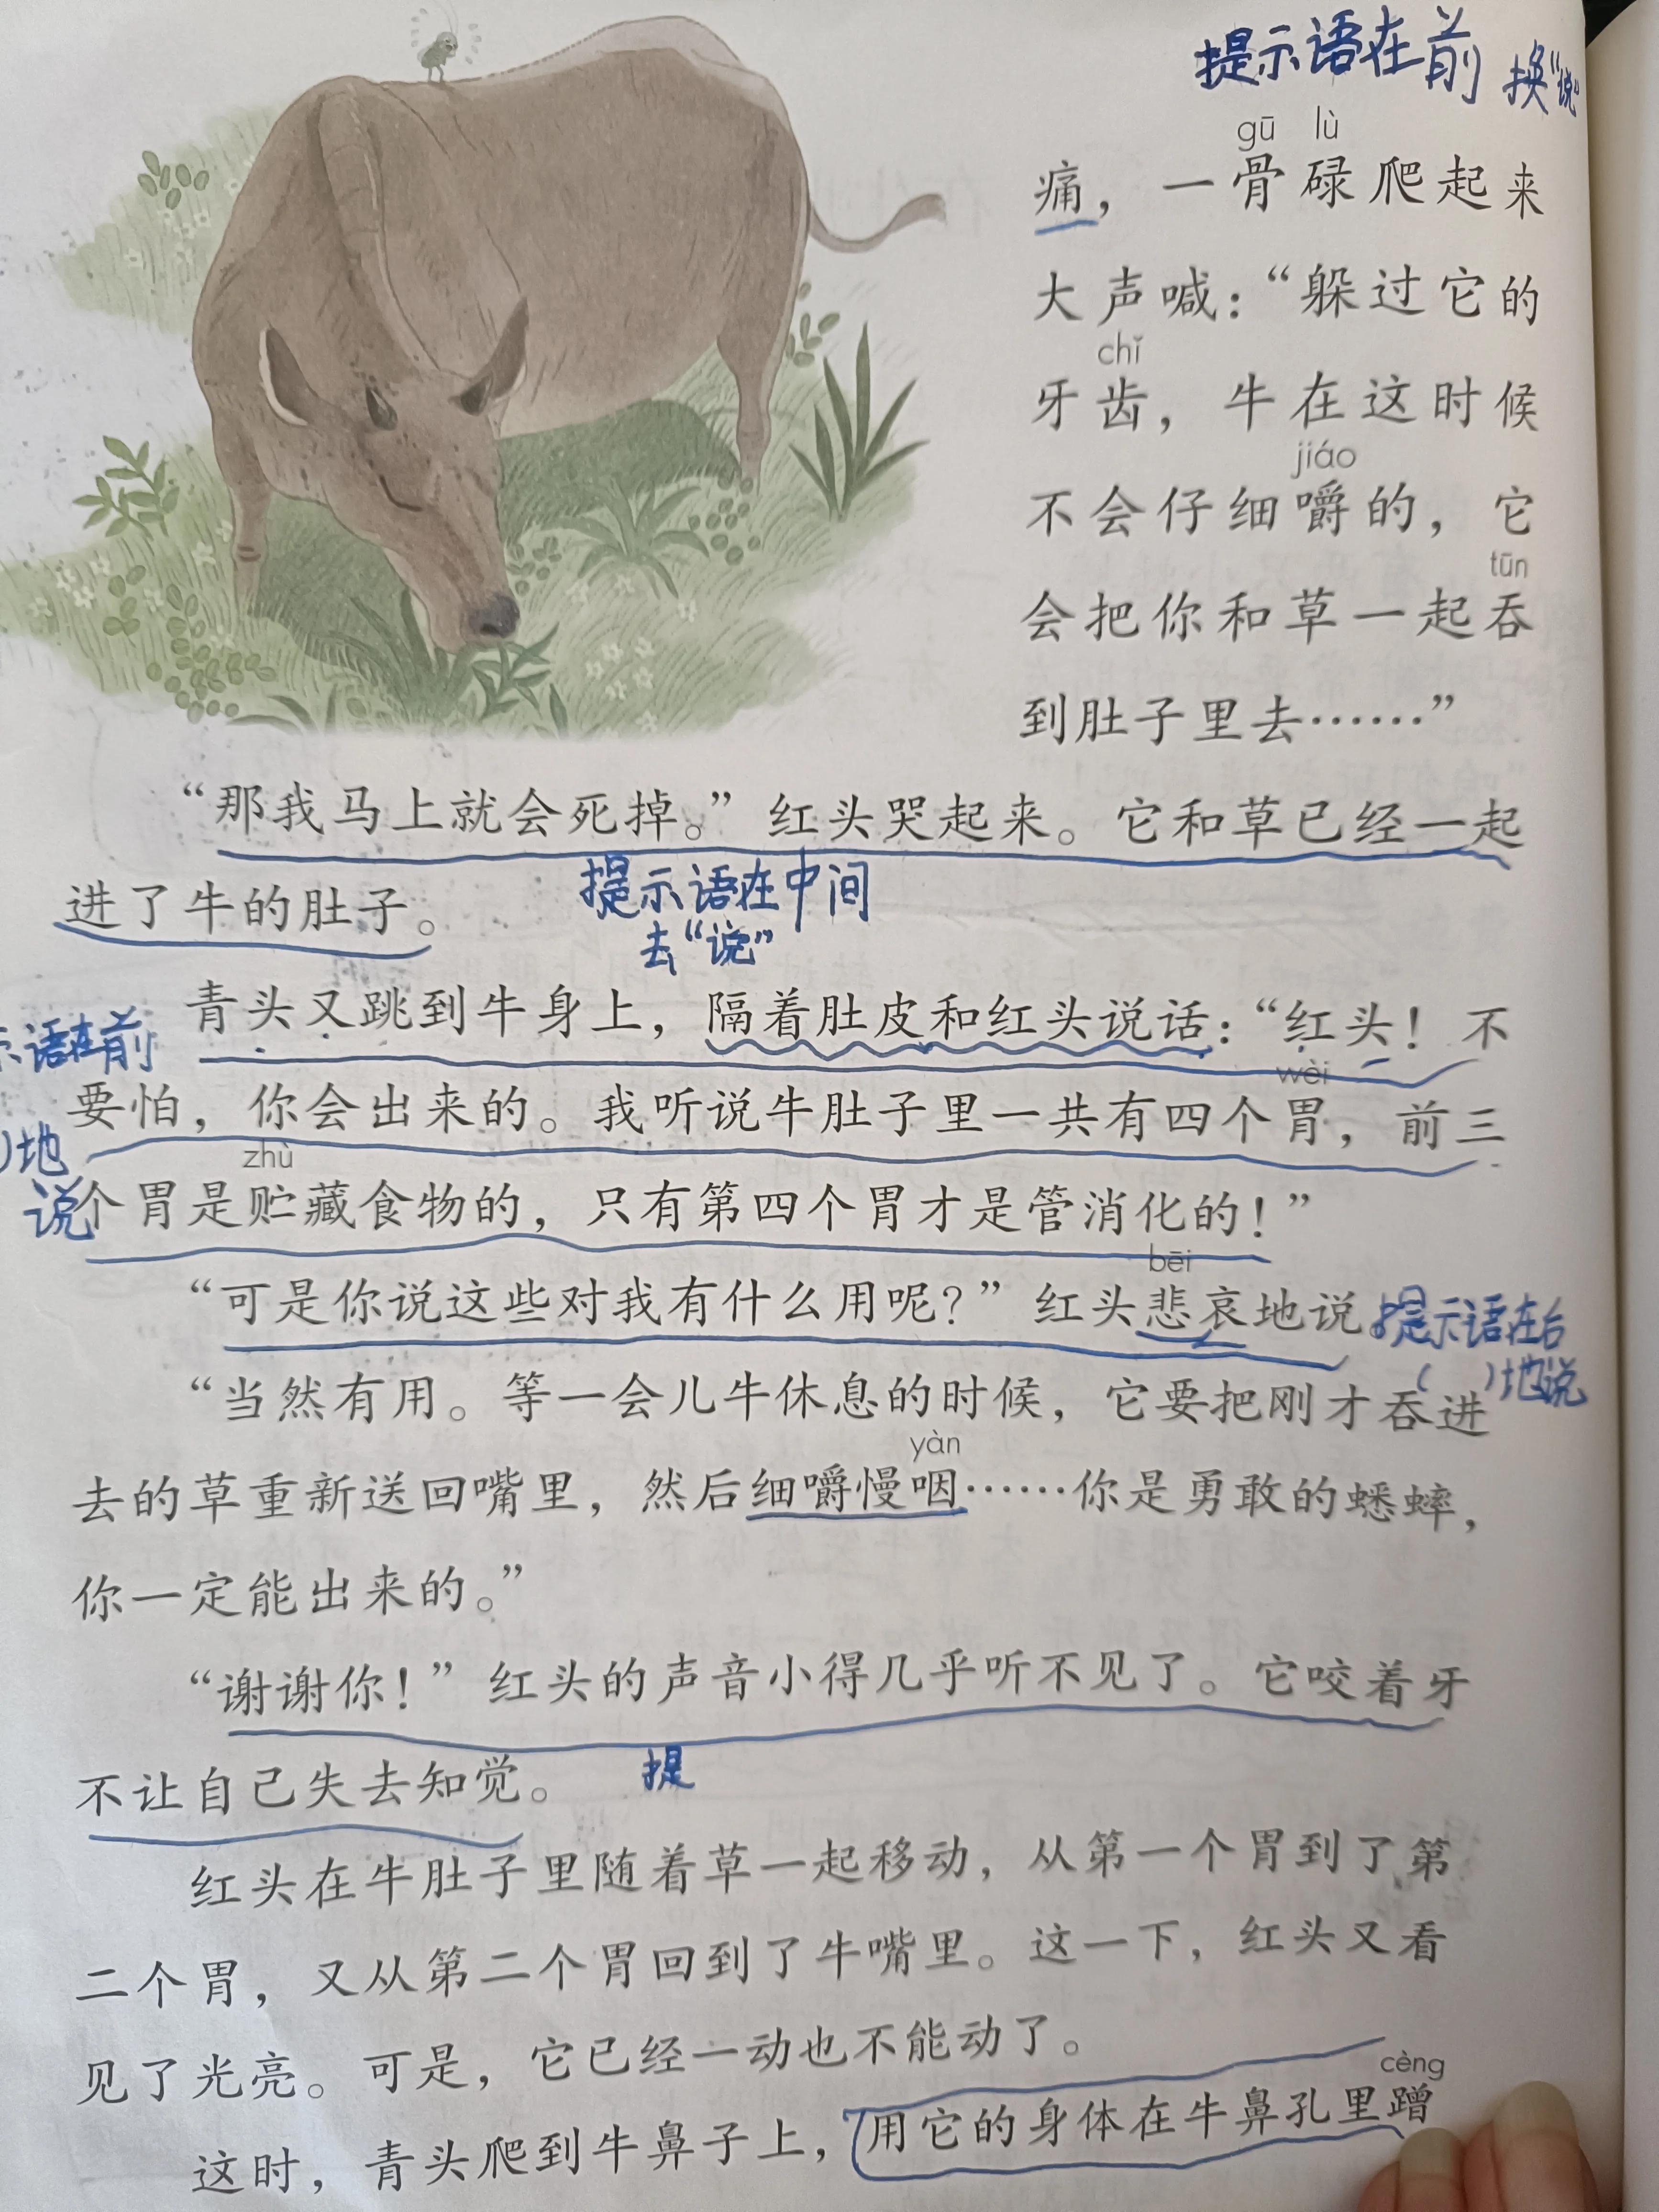 提示语在前 换“说”
gū lù
痛，一骨碌爬起来
大声喊：“躲过它的
chǐ
牙齿，牛在这时候
jiáo
不会仔细嚼的，它
tūn
会把你和草一起吞
到肚子里去……”
“那我马上就会死掉。”红头哭起来。它和草已经一起
提示语在中间
进了牛的肚子。
去“说”
青头又跳到牛身上，隔着肚皮和红头说话：“红头！不
示语在前
wèi
要怕，你会出来的。我听说牛肚子里一共有四个胃，前三
）地
说
zhù
个胃是贮藏食物的，只有第四个胃才是管消化的！”
bēi
“可是你说这些对我有什么用呢？”红头悲哀地说。
提示语在后
（ ）地说
“当然有用。等一会儿牛休息的时候，它要把刚才吞进
yàn
去的草重新送回嘴里，然后细嚼慢咽……你是勇敢的蟋蟀，
你一定能出来的。”
“谢谢你！”红头的声音小得几乎听不见了。它咬着牙
不让自己失去知觉。
提
红头在牛肚子里随着草一起移动，从第一个胃到了第
二个胃，又从第二个胃回到了牛嘴里。这一下，红头又看
见了光亮。可是，它已经一动也不能动了。
cèng
这时，青头爬到牛鼻子上，用它的身体在牛鼻孔里蹭